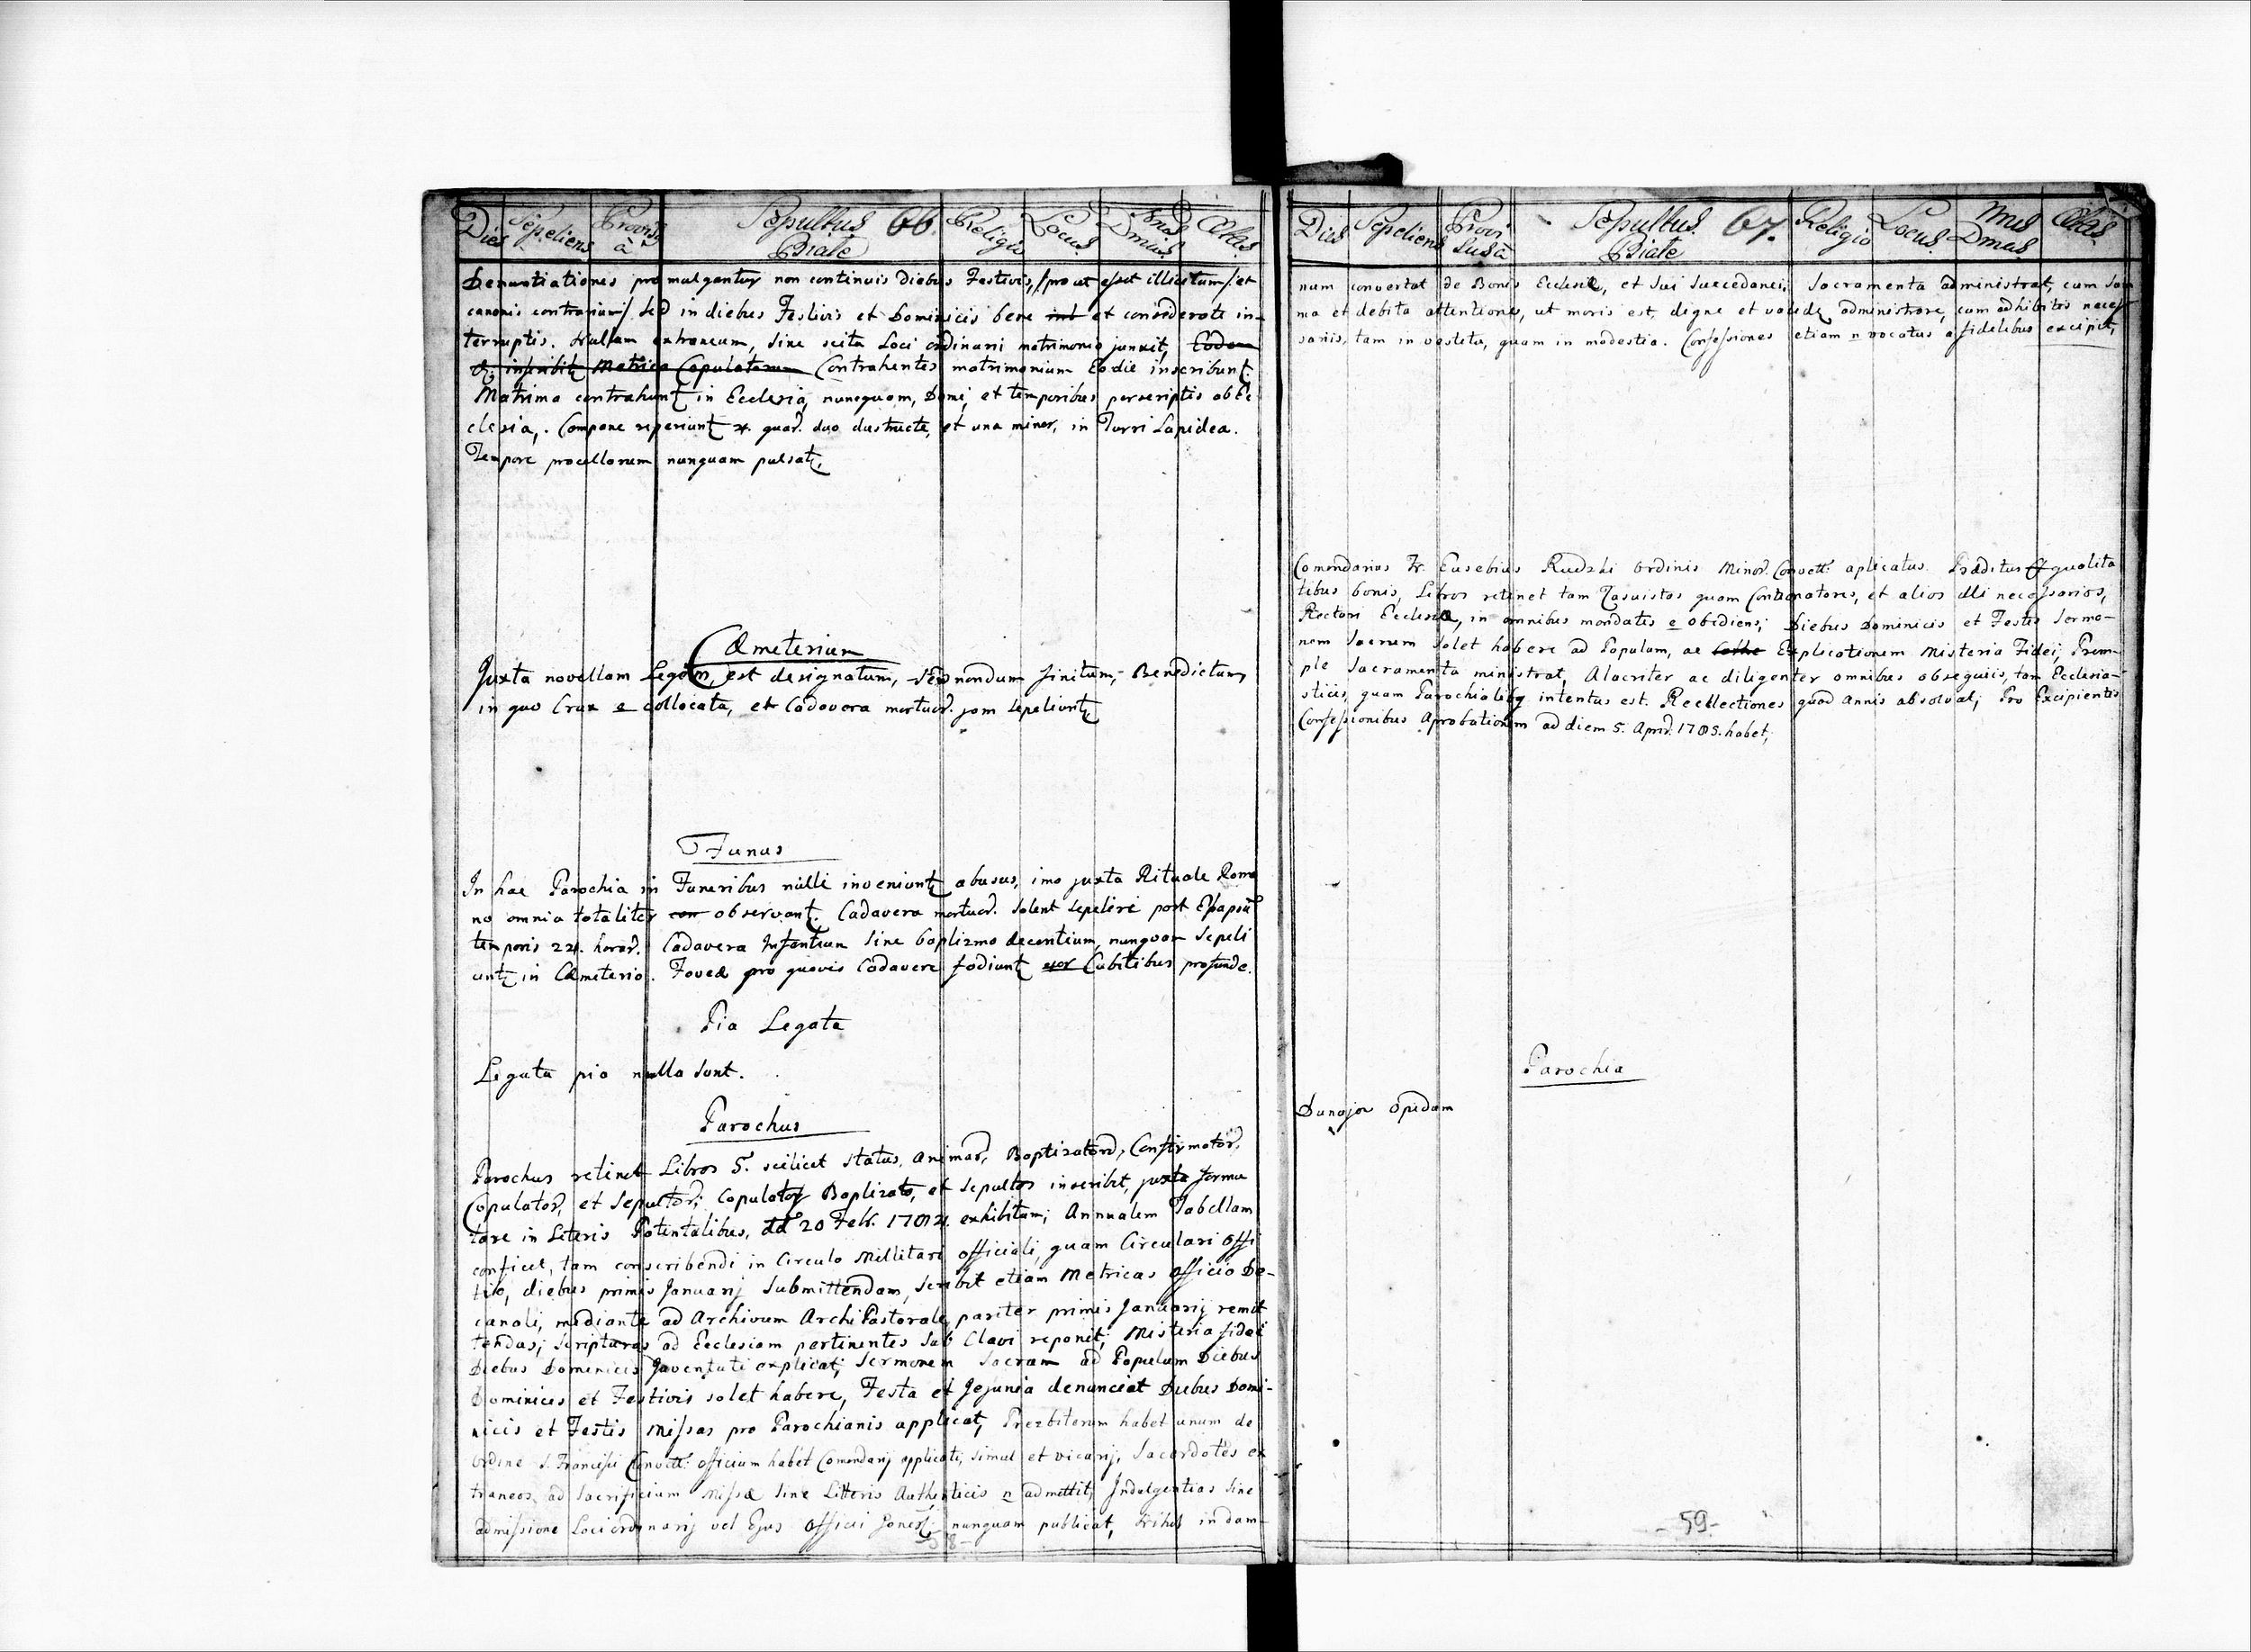 Dies Sepeliens Provisus à Sepultus 66. Religio Locus Mas Dmias Ætas
Biate
Denuntiationes promulgantur non continuis diebus Festivis, /:prout esset illicitum/: et
canonis contrarium/. Sed in diebus Festivis et Dominicis bene int et considerate in-
terruptis. Nullam extraneum, sine scitu Loci ordinarii matrimonio junxit, Eodem
inscribit Metrica Copulatorum Contrahentes matrimonium Eodie inscribunt.
Matrimo contrahunt in Ecclesia, nunquam, Domi, et temporibus perscriptis ab Ec
clesia,. Compane reperiunt 4. quar. duo dustructe, et una minor, in Turri Lapidea.
Tempore procellorum nunquam pulsat.
Cæmeterium
Juxta novellam Legem, est designatum, sed nondum finitum, Benedictum
in quo Crux e collocata, et Cadavera mortuor. jam sepeliunt
Funus
In hac Parochia in Funeribus nulli inveniunt abusus, imo juxta Rituale Roma
no omnia totaliter con observant. Cadavera mortuor. solent sepeliri post Elapsum
temporis 24. horar. Cadavera Infantium sine baptizmo decentium, nunquam sepeli
unt in Cæmeterio. Foveæ pro quovis Cadavere fodiunt Cubitibus profunde.
Pia Legata
Legata pia nulla sunt.
Parochus
Parochus retinet Libros 5. scilicet status, animar, Baptizatord, Confirmator,
Copulator, et Sepultor; Copulatos Baptizato, et Sepultos inscribit, juxta formu
tare in Literis Potentalibus, dd 20 Febr. 1784. exhibitam; Annualem Tabellam
conficit, tam conscribendi in Circulo Millitari officiali, quam Circulari offi
tio, diebus primis Januarij submittendam, scribit etiam Metricas officio De-
canali, mediante ad Archivum ArchiPastorale pariter primis Januarij remit
tendas; scripturas ad Ecclesiam pertinentes sub Clavi reponit; Misteria fidei
Diebus Dominicis Juventuti explicat; Sermonem Sacram ad Populum Diebus
Dominicis et Festivis solet habere, Festa et Jejunia denunciat Diebus Domi-
nicis et Festis Missas pro Parochianis applicat, Prezbiterum habet unum de
ordine S. Francisci Convett: officium habet Comendarij applicati, simul et vicarij, Sacerdotes ex
traneos, ad Sacrificium Missæ sine Litteris Authenticis n admittit, Indulgentias sine
admissione Loci ordinarij vel Ejus Officii nunquam publicat, Nihil in dam-
58-
Dies Sepeliens Provisus à Sepultus 67. Religio Locus Mus Dmas Ætas
Biate
num convertat de Bonis Ecclesiæ, et sui succedanei; Sacramenta administrat, cum
ma et debita attentione, ut moris est, digne et valide administrare, cum adhibitis neces
sariis, tam in vestitu, quam in modestia. Confessiones etiam n vocatus a fidelibus excipit,
Comendarius Fr. Eusebius Rudzki ordinis Minor. Convett: aplicatus. Præditus qualita
tibus bonis, Libros retinet tam Casuistas quam Contionatores, et alios illi necessarios,
Rectori Ecclesiæ, in omnibus mandatis e obediens; Diebus Dominicis et Festis Sermo-
nem Sacrum solet habere ad Populum, ac Explicationem Misteria Fidei; Prom-
pte Sacramenta ministrat, Alacriter ac diligenter omnibus obsequiis, tam Ecclesia-
sticis, quam Parochialibq intentus est. Recollectiones quod annis absolvat; Pro Excipientis
Confessionibus Aprobationem ad diem 5. Apriл. 1785. habet;
Parochia
Dunajow Opidum
-59-